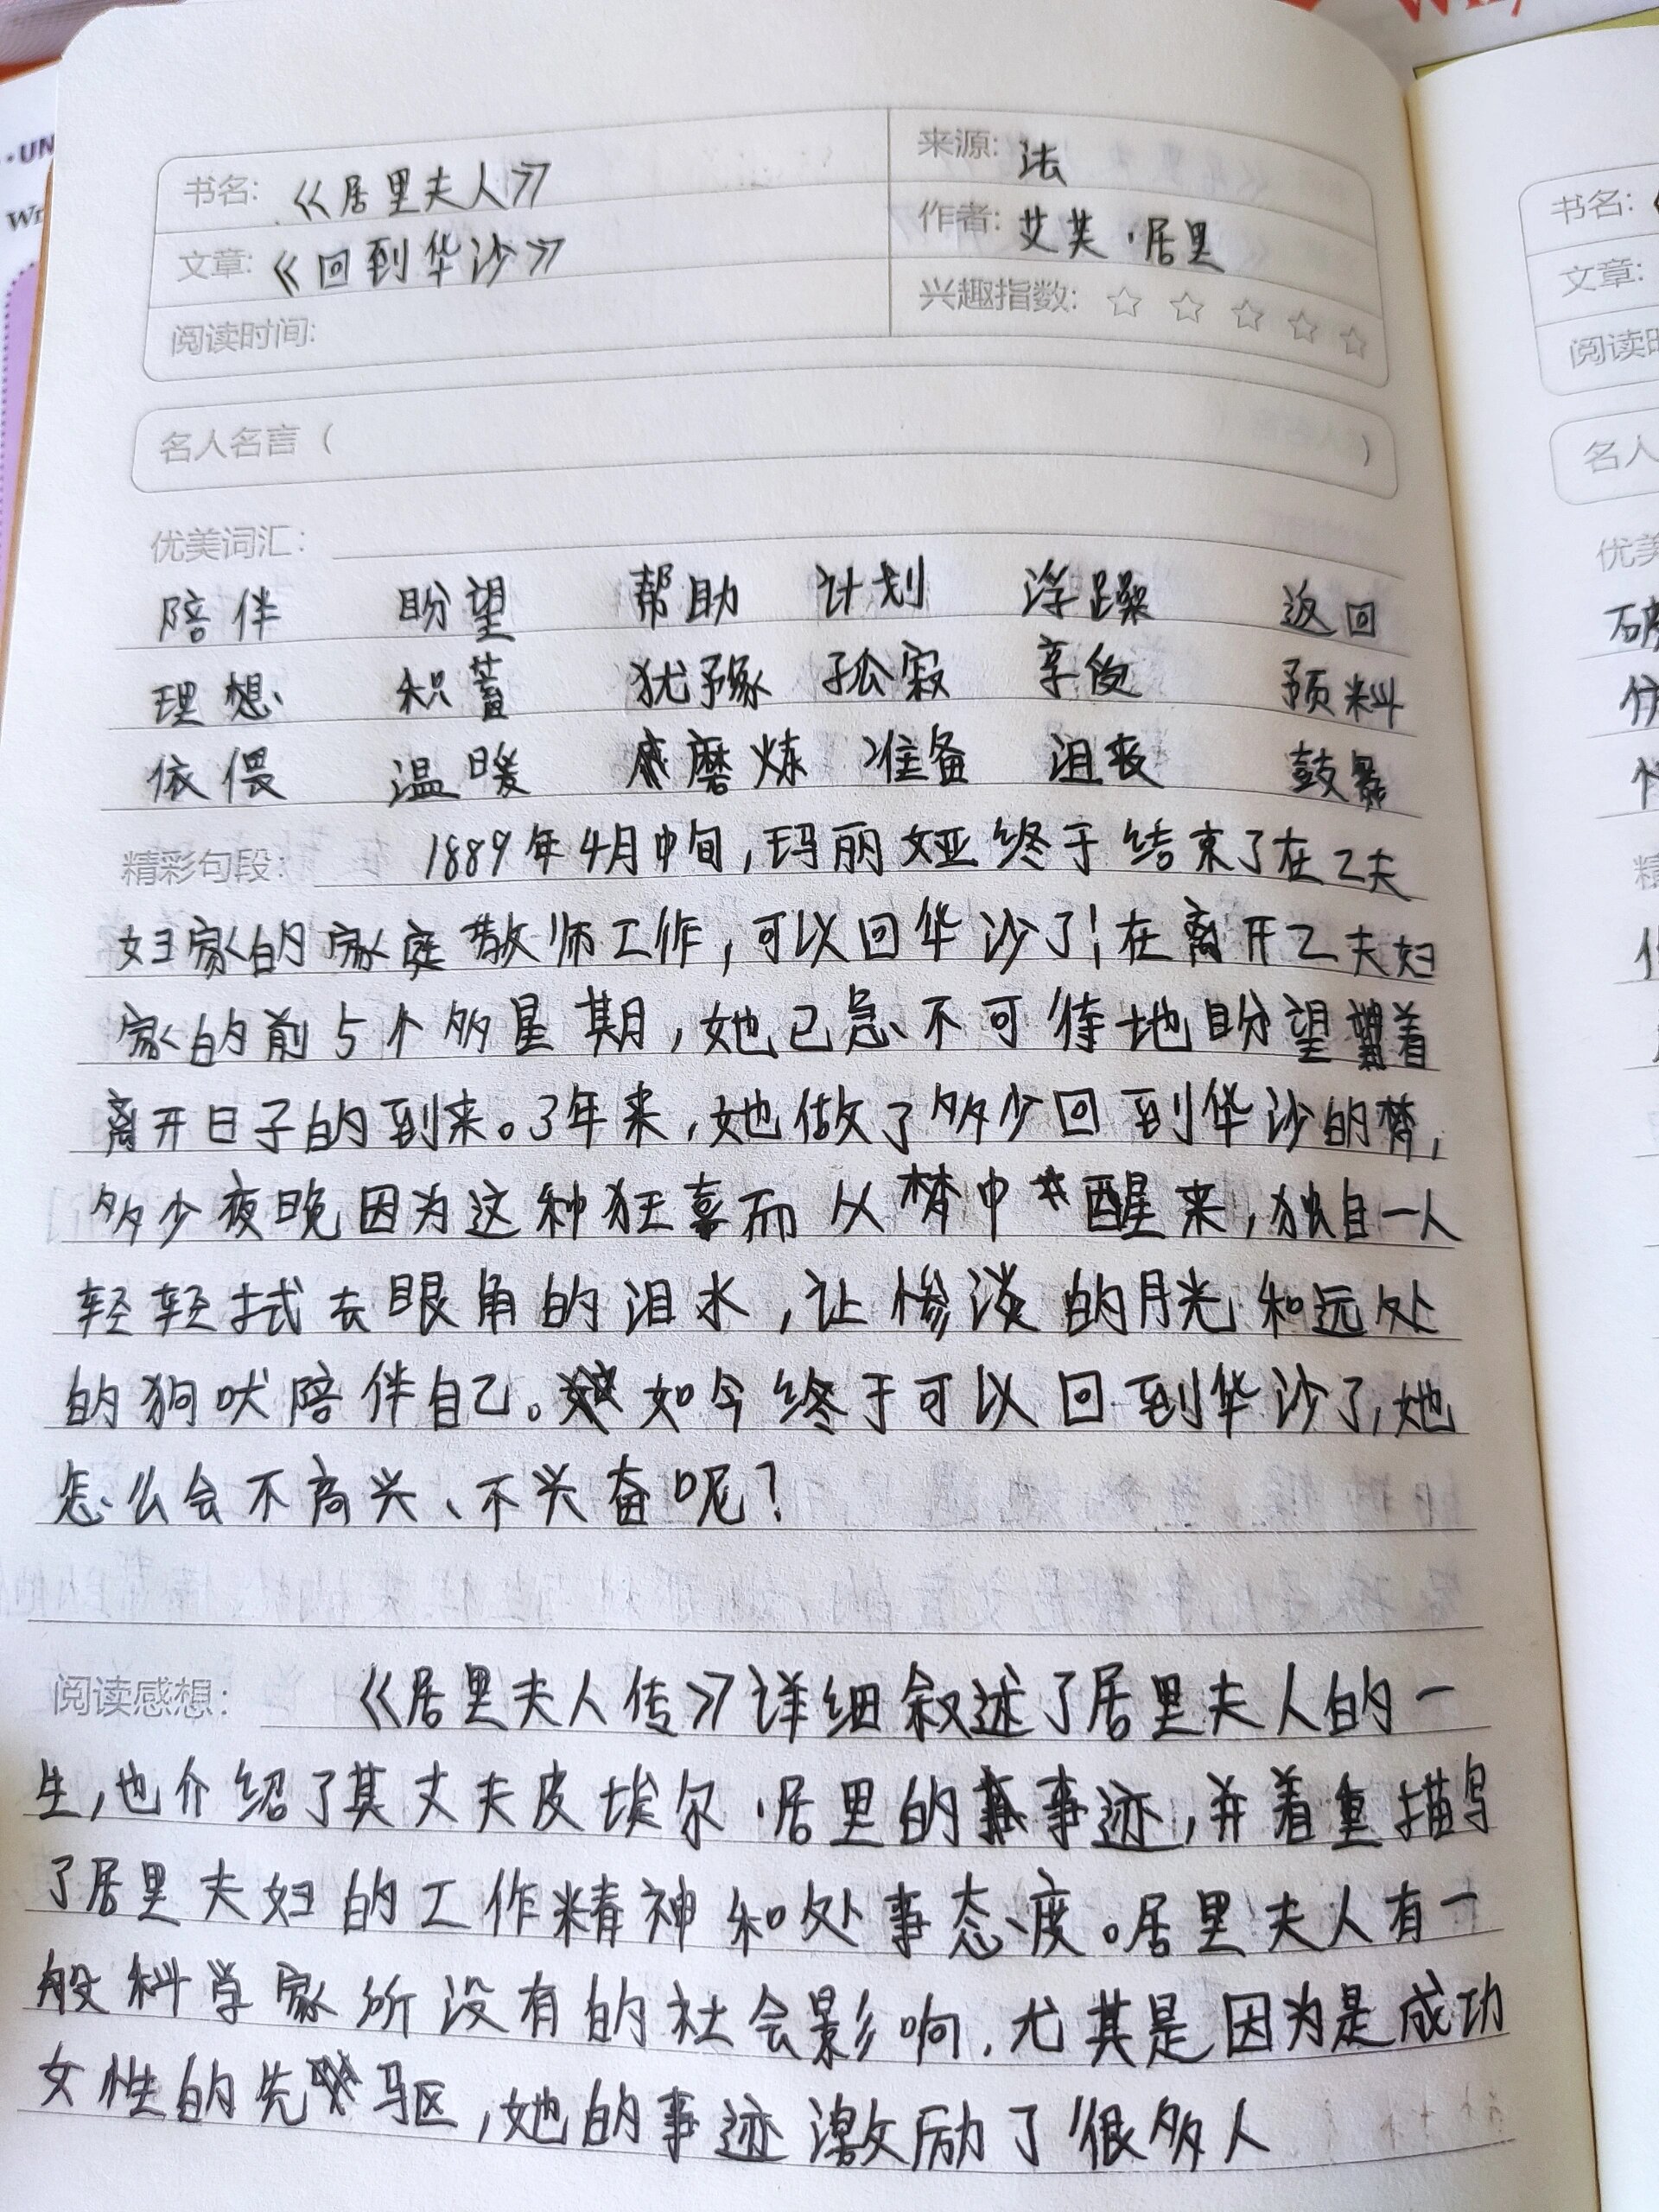 ·UN
Wr
书名:《居里夫人》
来源: 法
文章:《回到华沙》
作者: 艾芙·居里
阅读时间:
兴趣指数: ☆ ☆ ☆ ☆ ☆
名人名言 ( )
优美词汇:
陪伴 盼望 帮助 计划 浮躁 返回
理想 积蓄 犹豫 孤寂 享受 预料
依偎 温暖 磨炼 准备 沮丧 鼓暴
精彩句段: 1889年4月中旬,玛丽娅终于结束了在Z夫
妇家的家庭教师工作,可以回华沙了!在离开Z夫妇
家的前5个多星期,她已急不可待地盼望着
离开日子的到来。3年来,她做了多少回到华沙的梦,
多少夜晚因为这种狂喜而从梦中醒来,独自一人
轻轻拭去眼角的泪水,让惨淡的月光和远处
的狗吠陪伴自己。如今终于可以回到华沙了,她
怎么会不高兴、不兴奋呢?
阅读感想: 《居里夫人传》详细叙述了居里夫人的一
生,也介绍了其丈夫皮埃尔·居里的事迹,并着重描写
了居里夫妇的工作精神和处事态度。居里夫人有一
般科学家所没有的社会影响,尤其是因为是成功
女性的先驱,她的事迹激励了很多人
书名:
文章:
阅读时
名人
优美